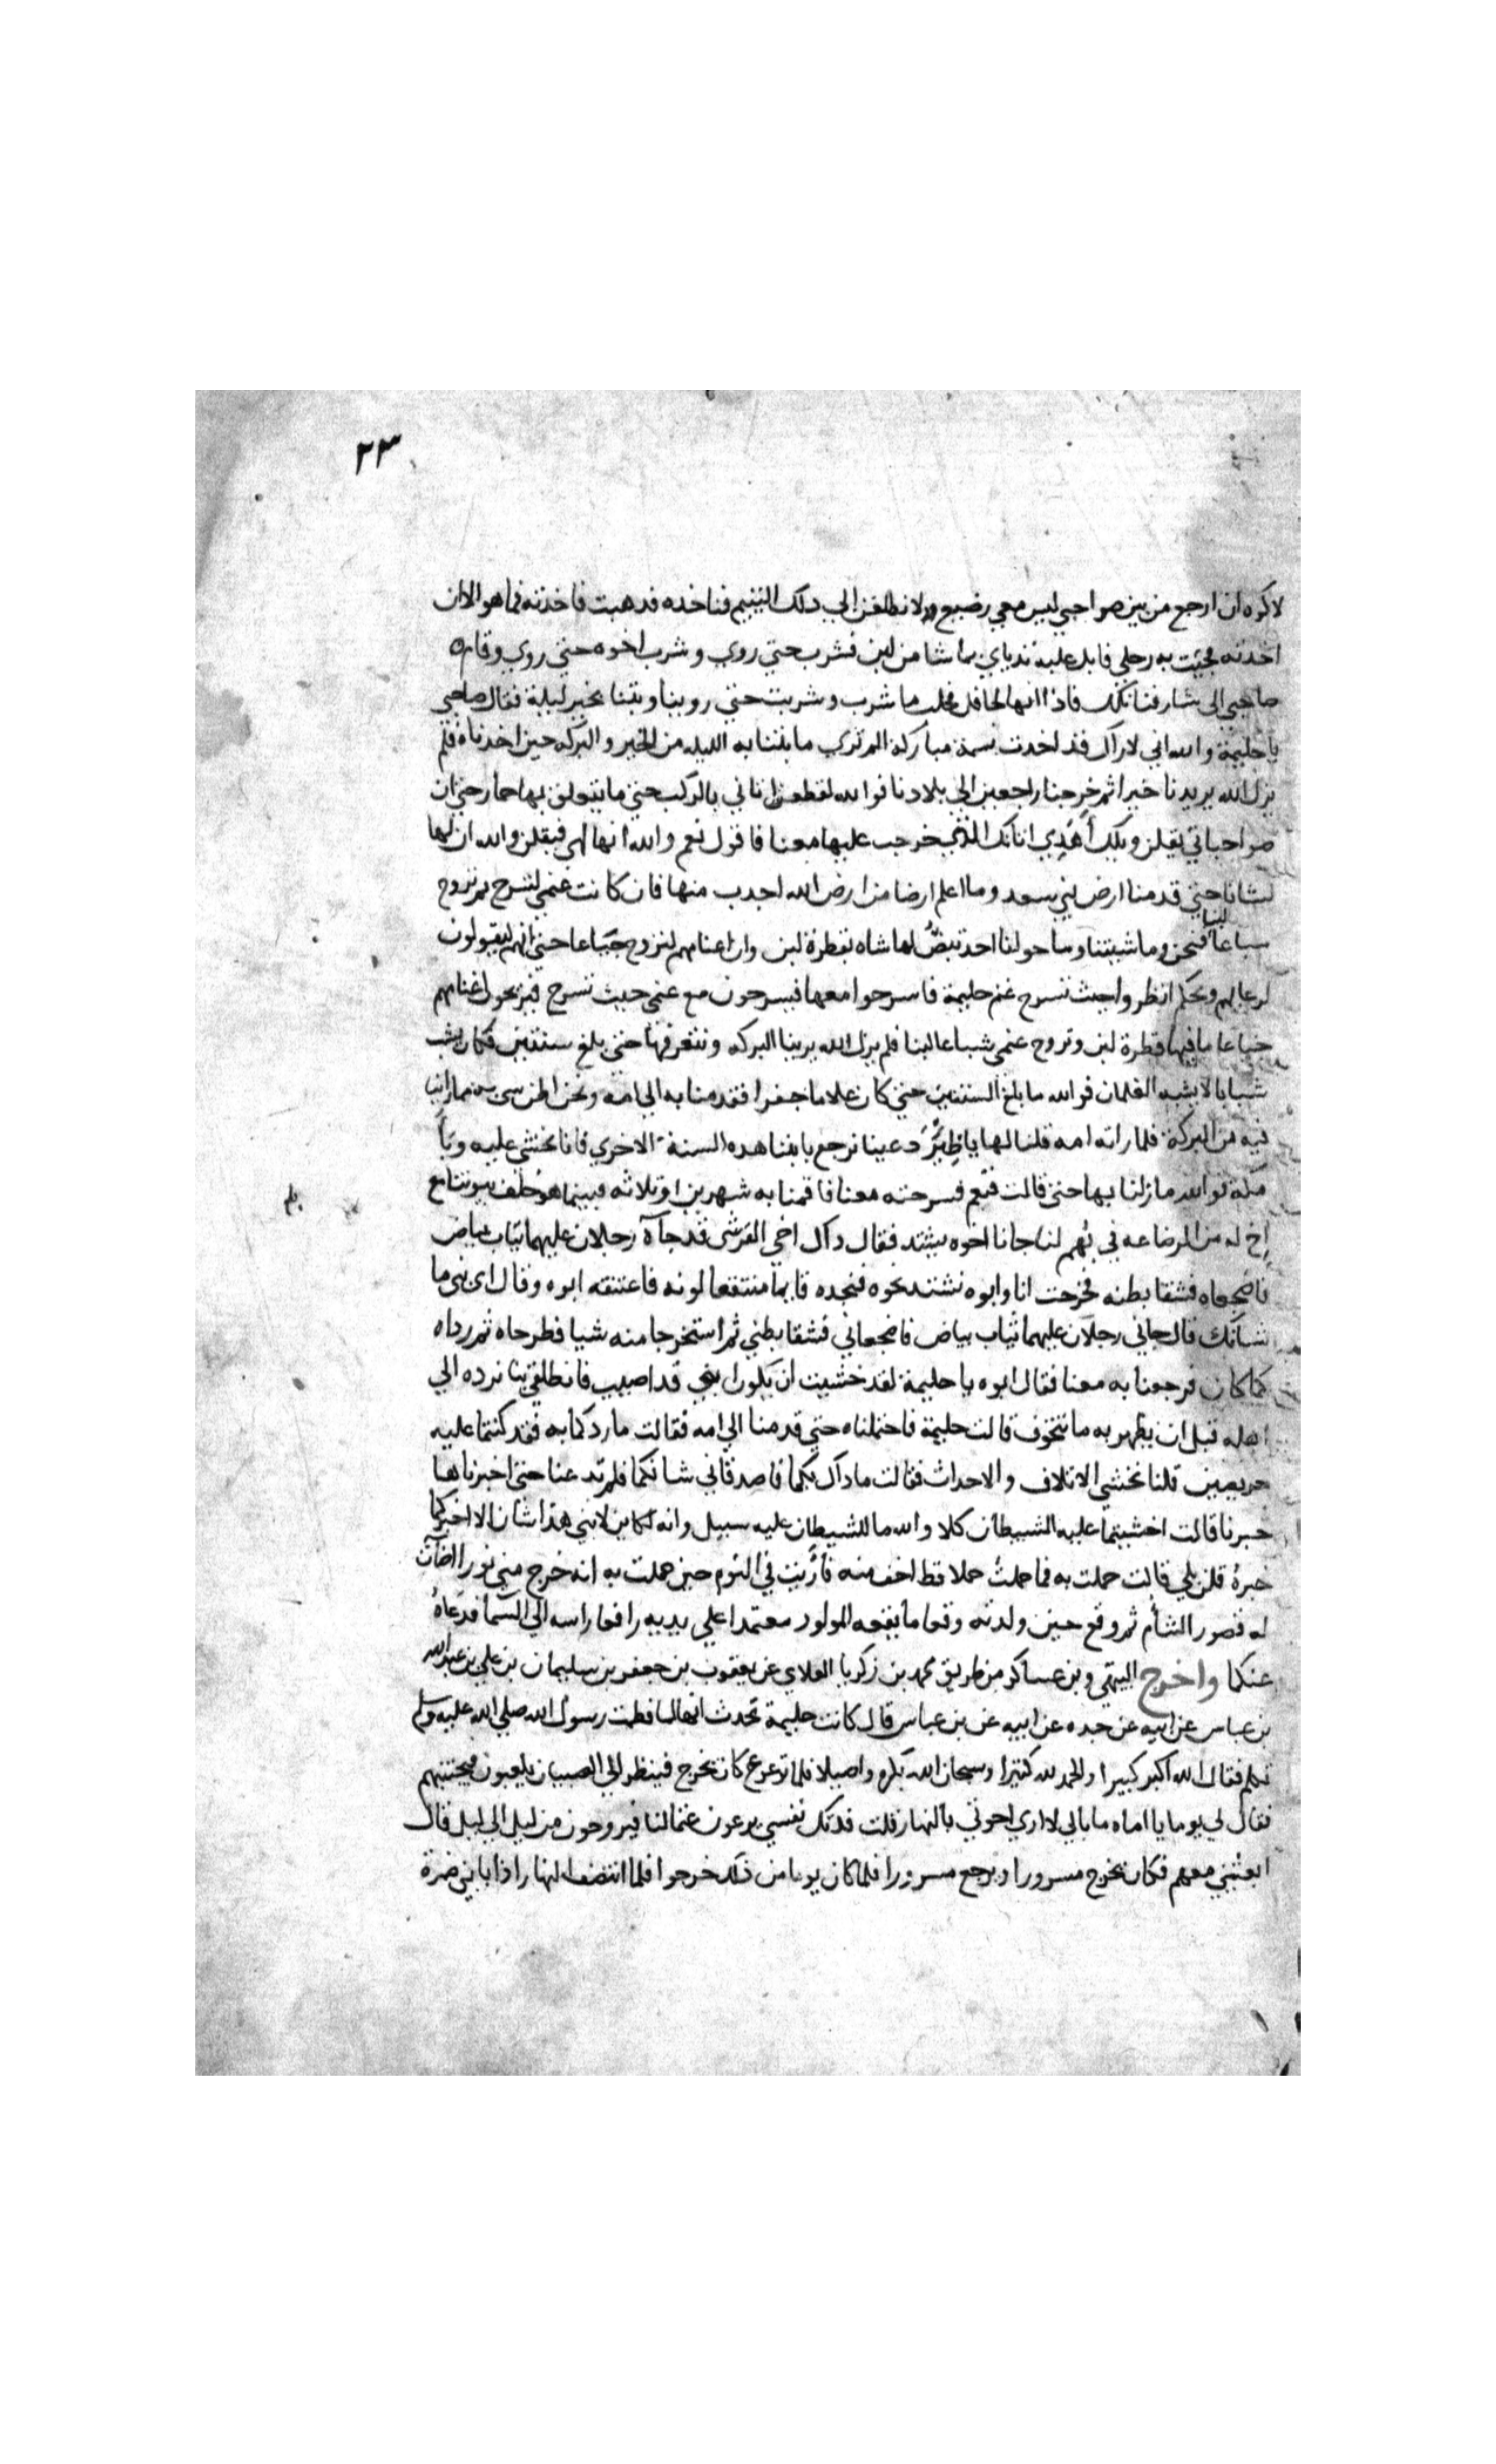 ٢٣
لاكره ان ارجع من بين صواحبي ليس معي رضيع ولانطلقن الي دلك اليتيم فناخده فدهبت فاخذته فما هو الا ان
اخدته فجئت به رحلي فاقبل عليه ثدياي بما شا من لبن فشرب حتي روي وشرب اخوه حتي روي وقام
صاحبي الى شارفنا تلك فاذا انها لحافل فحلب ما شرب وشربت حتي روينا وبتنا بخير ليلة فقال صاحبي
يا حليمة والله اني لاراك قد اخدت نسمة مباركة الم تري ما بتنا به الليله من الخير والبركه حين اخدناه فلم
يزل الله يريدنا خيرا ثم خرجنا راجعين الي بلادنا فوالله لقطعن اتاني بالركب حتي ما يتعلق بها حمار حتي ان
صواحباتي يقلن ويلك أهَذِي اتانك الذي خرجت عليها معنا فاقول نعم والله انها لهي فيقلن والله ان لها
لشانا حتي قدمنا ارض بني سعد وما اعلم ارضا من ارض الله اجدب منها فان كانت غنمي لتسرح ثم تروح
شباعا لبنا فنحن وما شيتنا وما حولنا احد تبضُّ لها شاه بقطرة لبن وان اغنامهم لتروح جياعا حتي انهم ليقولون
لرعاتهم ويحكم انظروا حيث تسرح غنم حليمة فاسرحوا معها فيسرحون مع غنمي حيث تسرح فيريحون اغنامهم
جياعا ما فيها قطرة لبن وتروح غنمي شباعا لبنا فلم يزل الله يرينا البركه ونتعرفها حتي بلغ سنتين فكان يشب
شبابا لا يشبه الغلمان فوالله ما بلغ السنتين حتي كان غلاما جفرا فقدمنا به الي امه ونحن اضن شي به مما راينا
فيه من البركة فلما راته امه قلنا لها يا ظِئرُ دعينا نرجع بابننا هده السنة الاخري فانا نخشي عليه وبأَ
مكة فوالله ما زلنا بها حتي قالت فنعم فسرحته معنا فاقمنا به شهرين او ثلاثه فبينما هو خلف بيوتنا مع
اخ له من الرضاعه في بهم لنا جانا اخوه يشتد فقال داك اخي القرشي قد جآه رجلان عليهما ثياب بياض
فاضجعاه فشقا بطنه فخرجت انا وابوه نشتد نحوه فنجده قايما منتقعا لونه فاعتنقه ابوه وقال اي بني ما
شانك قال جاني رجلان عليهما ثياب بياض فاضجعاني فشقا بطني ثم استخرجا منه شيا فطرحاه ثم رداه
كما كان فرجعنا به معنا فقال ابوه يا حليمة لقد خشيت ان يكون ابني قد اصيب فانطلقي بنا نرده الي
اهله قبل ان يظهر به ما نتخوف قالت حليمة فاحتملناه حتي قدمنا الي امه فقالت ما ردكما به فقد كنتما عليه
حريصين قلنا نخشي الاتلاف والاحداث فقالت ما داك بكما فاصدقاني شانكما فلم تدعنا حتي اخبرناها
خبرنا قالت اخشيتما عليه الشيطان كلا والله ما للشيطان عليه سبيل وانه لكاين لابني هذا شان الا اخبركما
خبرهُ قلن بلي قالت حملت به فما حملتُ حملا قط اخف منه فأُريت في النوم حين حملت به انه خرج مني نورا اضآت
له قصور الشام ثم وقع حين ولدته وقوعا ما يقعه المولود معتمدا علي يديه رافعا راسه الي السما فدعاهُ
عنكما واخرج البيهقي وبن عساكر من طريق محمد بن زكريا الغلابي عن يعقوب بن جعفر بن سليمان بن علي بن عبد الله
بن عباس عن ابيه عن جده عن ابيه عن بن عباس قال كانت حليمة تحدث انها لما فطمت رسول الله صلي الله عليه وسلم
تكلم فقال الله اكبر كبيرا والحمد لله كثيرا وسبحان الله بكره واصيلا فلما ترعرع كان يخرج فينظر الي الصبيان يلعبون فيجتنبهم
فقال لي يوما يا اماه ما بالي لا اري اخوتي بالنهار قلت فدتك نفسي يرعون غنما لنا فيروحون من ليل الي ليل قال
ابعثيني معهم فكان يخرج مسرورا ويرجع مسرورا فلما كان يوما من ذلك خرجوا فلما انتصف النهار اذا بابني ضمرة